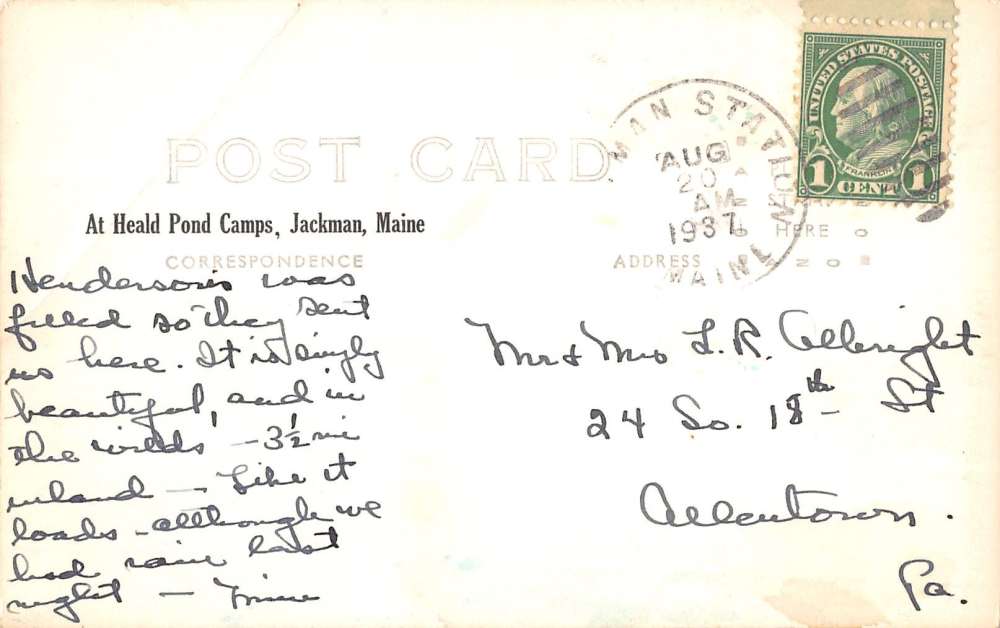 POST CARD
MAN STATION
AUG
20
AM
1937
MAINE
UNITED STATES POSTAGE
FRANKLIN
1 CENT 1
HERE
At Heald Pond Camps, Jackman, Maine
CORRESPONDENCE
ADDRESS
Henderson's was
filled so they sent
us here. It is simply
beautiful, and in
the wilds - 3½ mi
inland - Like it
loads - although we
had rain last
night -
Mr & Mrs L. R. Albright
24 So. 18th St
Allentown.
Pa.